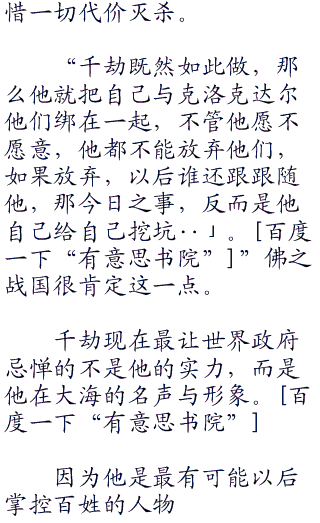 惜一切代价灭杀。
“千劫既然如此做，那
么他就把自己与克洛克达尔
他们绑在一起，不管他愿不
愿意，他都不能放弃他们，
如果放弃，以后谁还跟跟随
他，那今日之事，反而是他
自己给自己挖坑··」。[百度
一下“有意思书院”]”佛之
战国很肯定这一点。
千劫现在最让世界政府
忌惮的不是他的实力，而是
他在大海的名声与形象。[百
度一下“有意思书院”]
因为他是最有可能以后
掌控百姓的人物